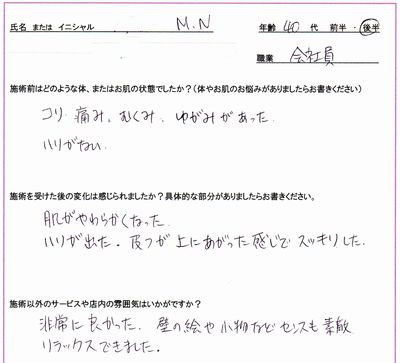 氏名 または イニシャル M.N 年齢 40 代 前半 ・ 後半
職業 会社員
施術前はどのような体、またはお肌の状態でしたか?(体やお肌のお悩みがありましたらお書きください)
コリ、痛み、むくみ、ゆがみがあった。
ハリがない。
施術を受けた後の変化は感じられましたか?具体的な部分がありましたらお書きください。
肌がやわらかくなった。
ハリが出た。皮フが上にあがった感じでスッキリした。
施術以外のサービスや店内の雰囲気はいかがですか?
非常に良かった。壁の絵や小物などセンスも素敵
リラックスできました。